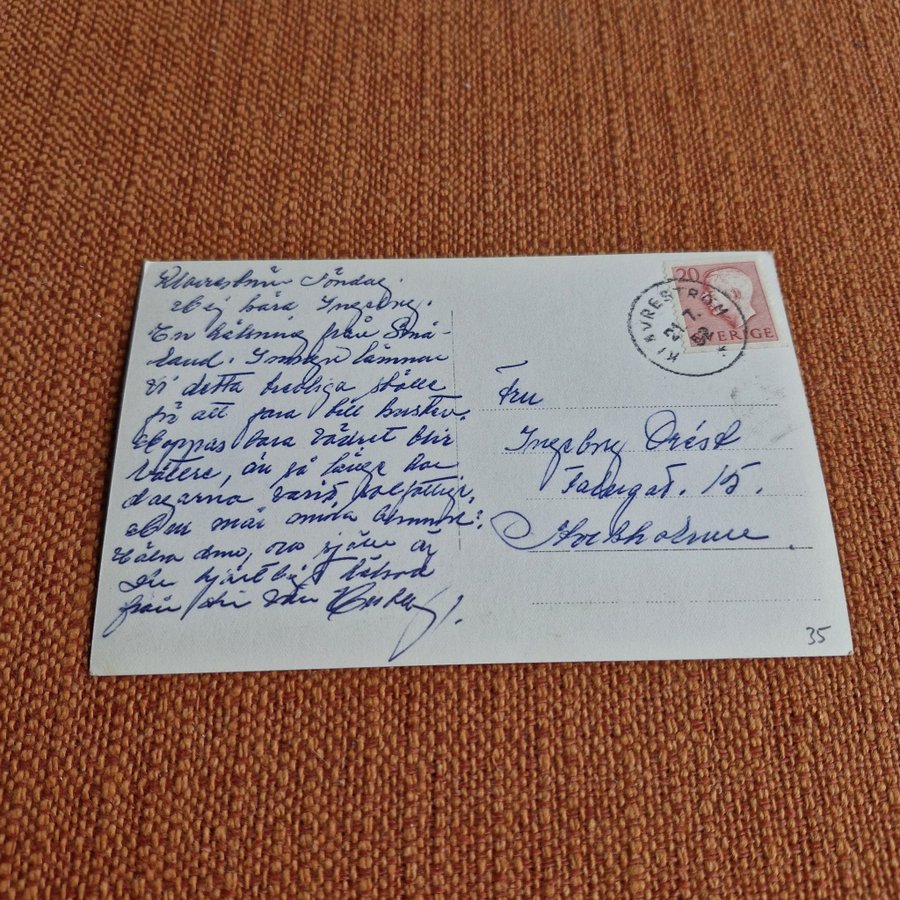 Klavreström Söndag.
Hej kära Ingeborg.
En hälsning från Små-
land. I morgon lämnar
vi detta trevliga ställe
för att fara till kusten.
Hoppas bara vädret blir
bättre, än så länge har
dagarna varit
Men mår
Hälsa själv är
Du hjärtligt hälsad
från din vän
20
SVERIGE
KLAVRESTRÖM
21.7.52
Fru
Ingeborg
15.
Stockholm
35